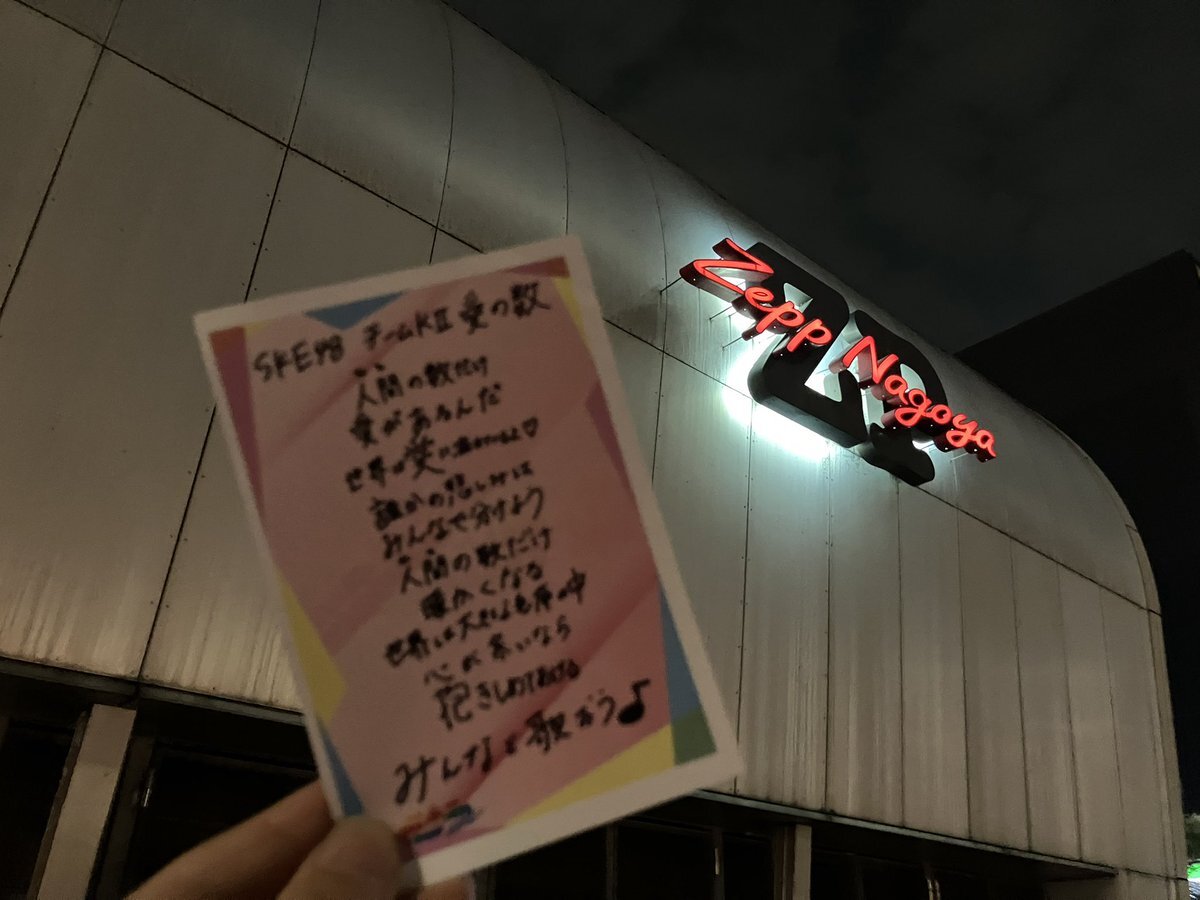 SKE48 チームKⅡ 愛の数
人間の数だけ
愛があるんだ
世界は愛に溢れてるよ♡
誰かの悲しみは
みんなで分けよう
人間の数だけ
暖かくなる
世界は大きな毛布の中
心が寒いなら
抱きしめてあげる
みんなで歌おう♪
Zepp Nagoya